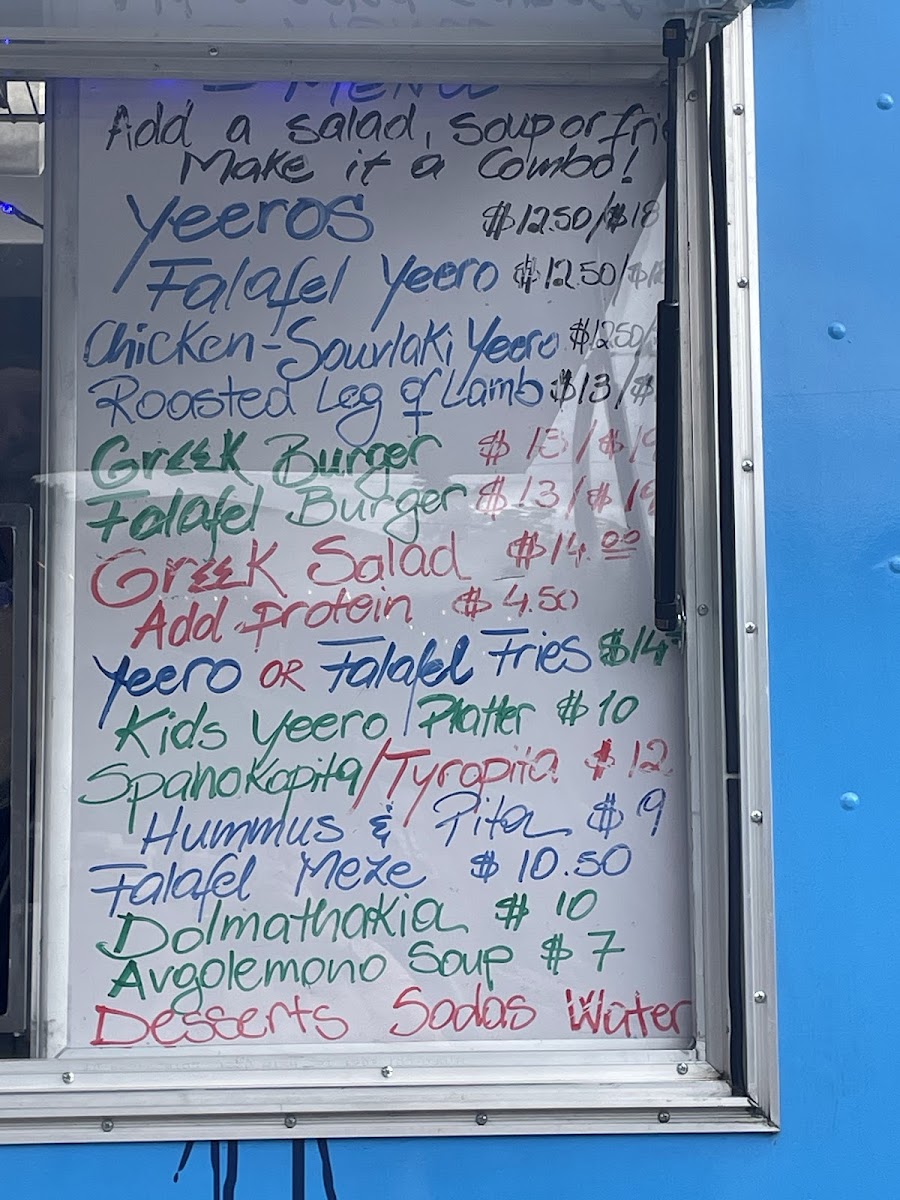 MENU
Add a salad, soup or frie
Make it a Combo!
Yeeros $12.50/$18
Falafel Yeero $12.50/$
Chicken-Souvlaki Yeero $12.50/
Roasted Leg of Lamb $13/$
Greek Burger $13/$19
Falafel Burger $13/$19
Greek Salad $14.00
Add Protein $4.50
Yeero OR Falafel Fries $14
Kids Yeero/Platter $10
Spanokopita/Tyropita $12
Hummus & Pita $9
Falafel Meze $10.50
Dolmathakia $10
Avgolemono Soup $7
Desserts Sodas Water